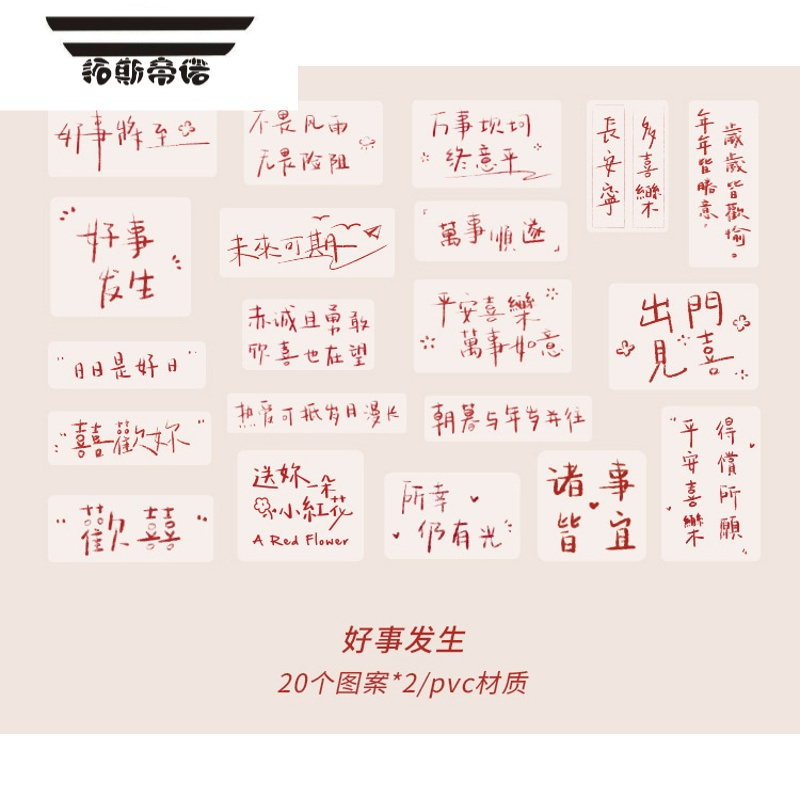 拓斯帝诺
好事將至
不畏风雨
无畏险阻
万事坎坷
终意平
多喜樂
長安寧
歲歲皆歡愉。
年年皆勝意，
好事
发生
未來可期
萬事順遂
赤诚且勇敢
欣喜也在望
平安喜樂
萬事如意
出門
見喜
"日日是好日"
热爱可抵岁月漫长
朝暮与年岁并往
"囍歡妳"
得償所願
平安喜樂
送妳一朵
小紅花
A Red Flower
所幸
仍有光
诸事
皆宜
"歡囍"
好事发生
20个图案*2/pvc材质